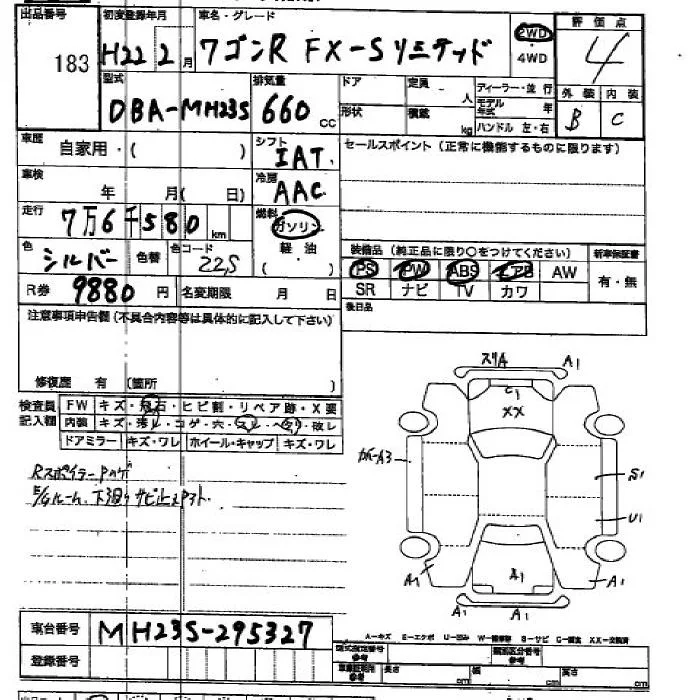 出品番号 初度登録年月 車名・グレード 評価点
183 H22 2月 ワゴンR FX-Sリミテッド 2WD ・ 4WD 4
型式 排気量 ドア 定員 人 ディーラー・並行
DBA-MH23S 660 cc 形状 積載 kg モデル年式 年 外装 内装
ハンドル 左・右 B C
車歴 自家用・( ) シフト IAT セールスポイント(正常に機能するものに限ります)
車検 年 月( 日) 冷房 AAC
走行 7万6千580km 燃料 ガソリン
色 シルバー 色替 色コード Z2S 軽油 ( )
装備品(純正品に限り○をつけてください) 新車保証書
PS PW ABS エアB AW 有・無
R券 9880円 名変期限 月 日 SR ナビ TV カワ
後日品
注意事項申告欄(不具合内容等は具体的に記入して下さい)
修復歴 有 (箇所 )
検査員 記入欄 FW キズ・飛石・ヒビ割・リペア跡・X要
内装 キズ・汚れ・コゲ・穴・スレ・ヘタリ・破レ
ドアミラー キズ・ワレ ホイール・キャップ キズ・ワレ
RスポイラーPハゲ
下廻りサビ
スリA A1
C1
XX
A3
S1
U1
A1 A1 A1
A1 A1
車台番号 MH23S-295327
A-キズ E-エクボ U-凹み S-サビ XX-交換済
登録番号
参考 長さ cm 幅 cm 高さ cm